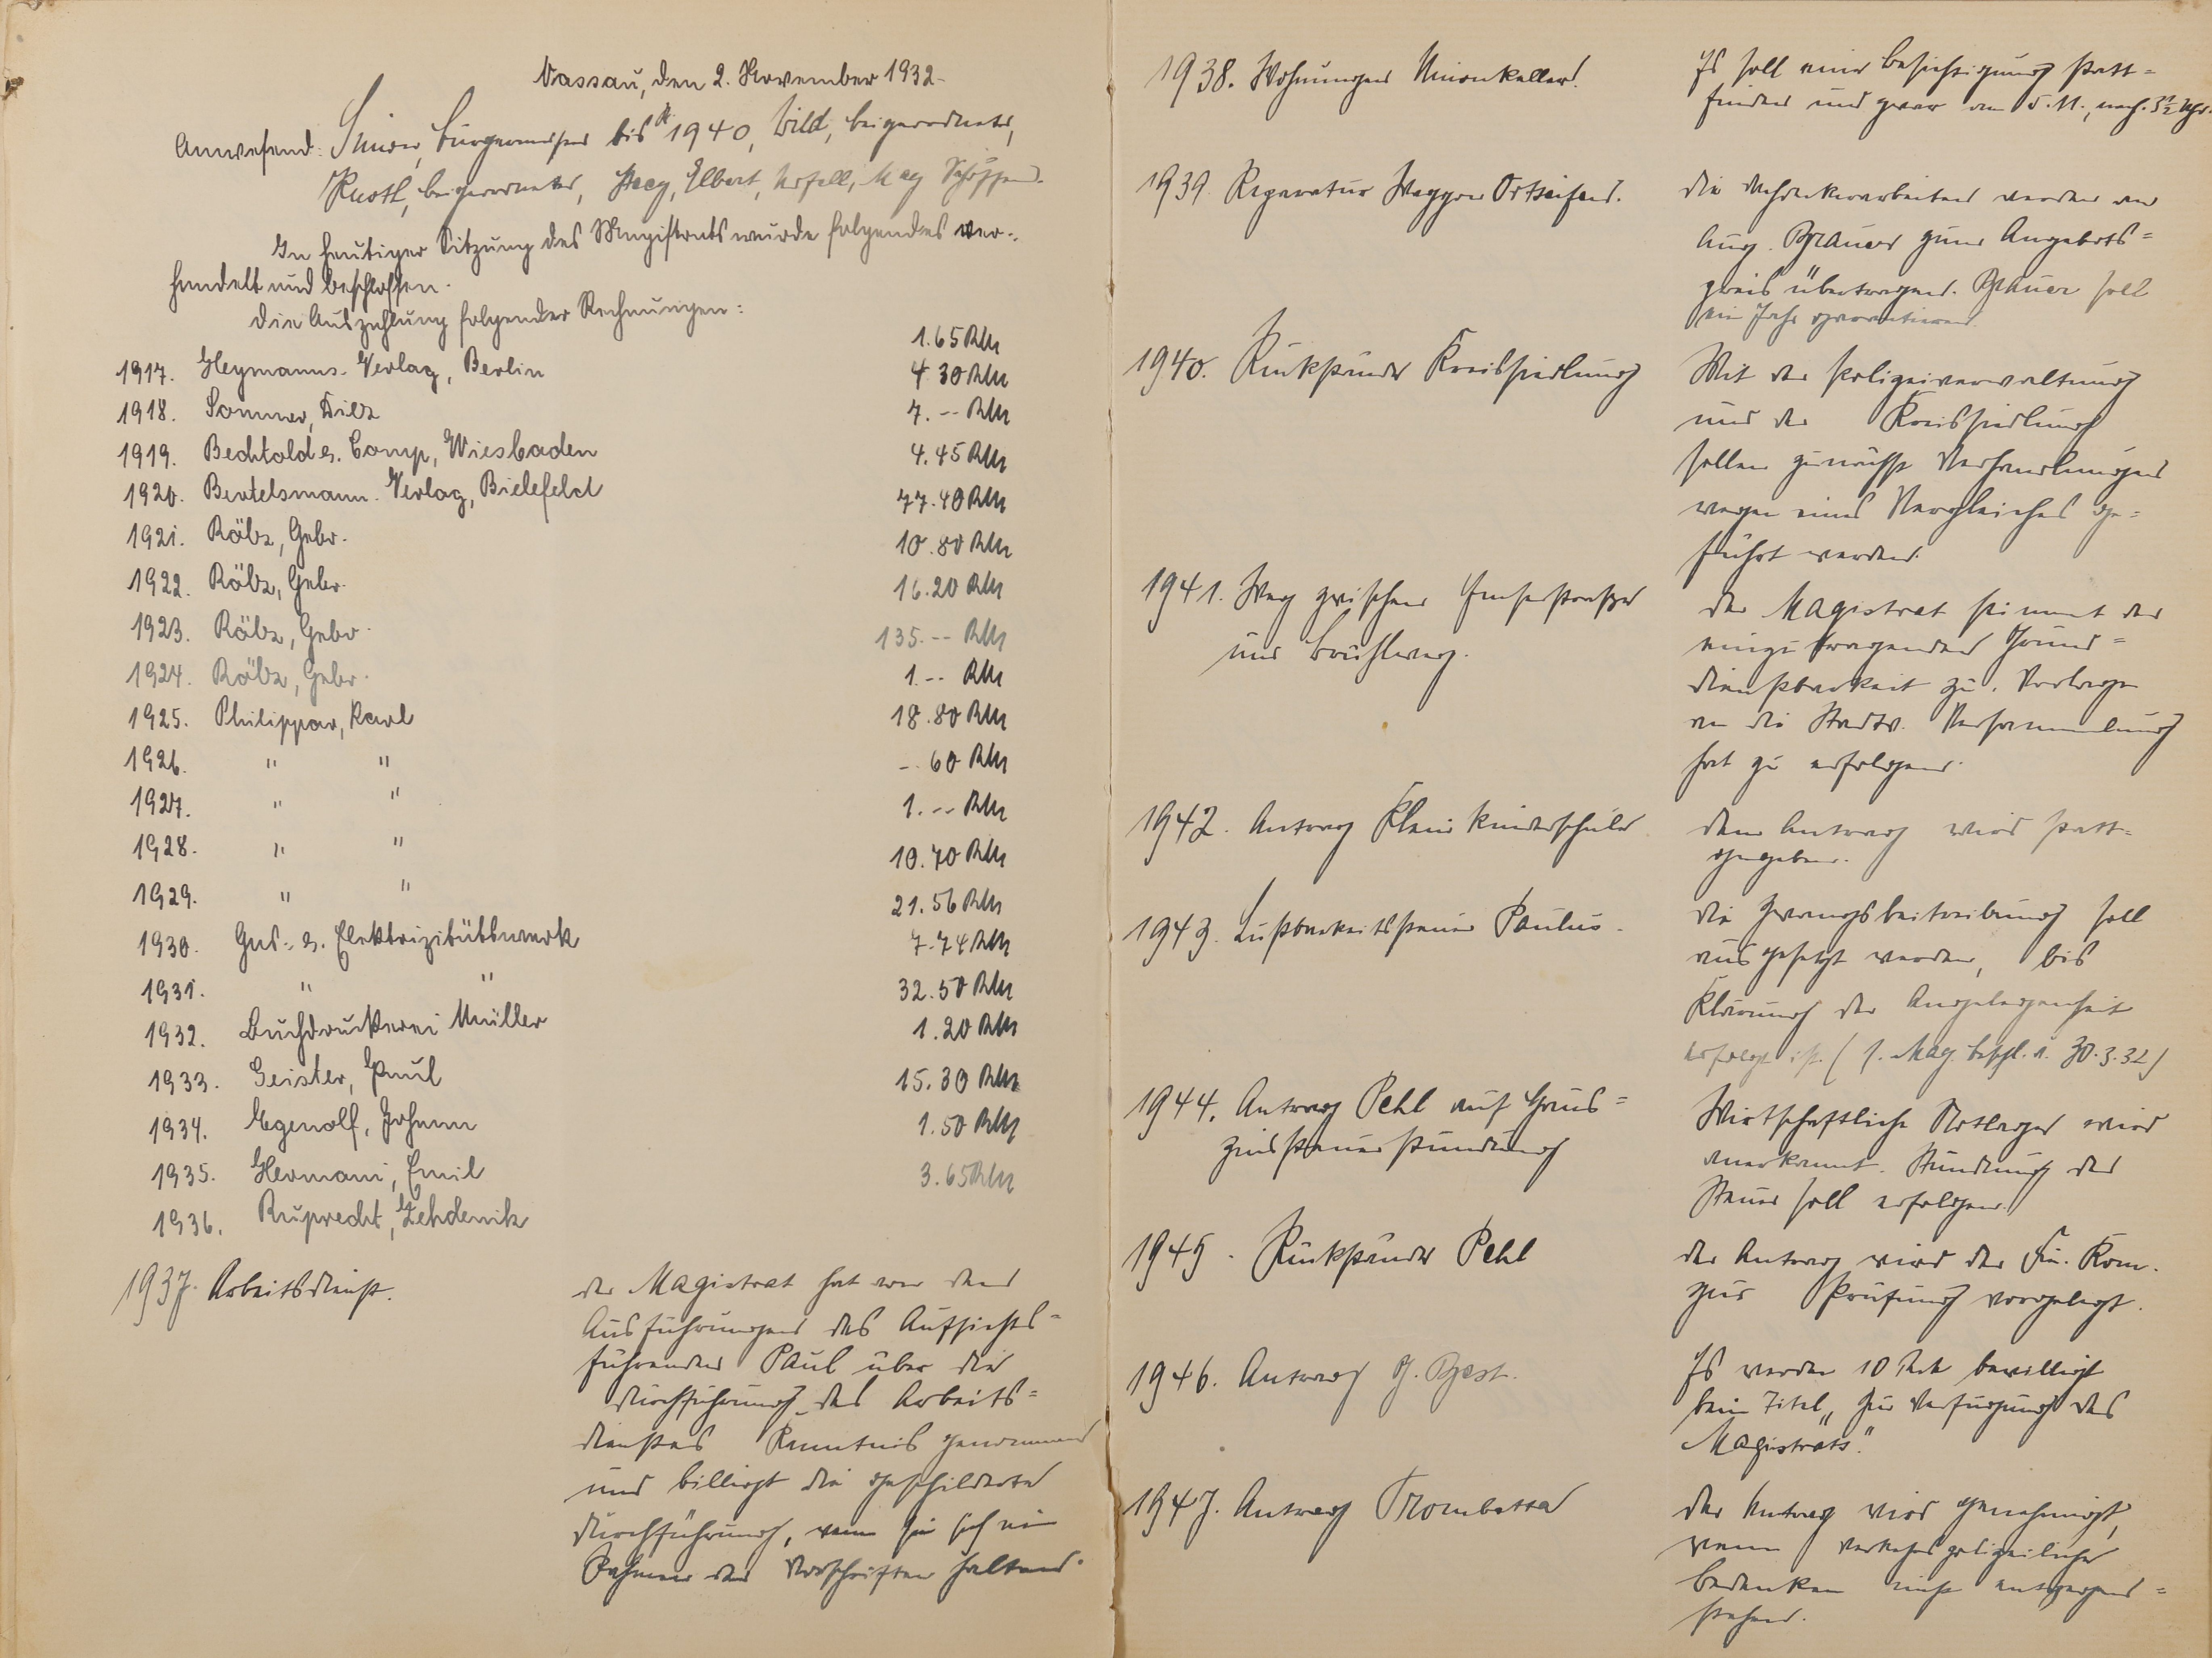 Nassau, den 2. November 1932.
Anwesend: Bürgermeister bis 1940, Wild, Beigeordneter,
Beigeordneter, Elbert, Schöffen.
In heutiger Sitzung des Magistrats wurde folgendes ver-
handelt und beschlossen.
Die Auszahlung folgender Rechnungen:
1917. Heymanns-Verlag, Berlin 1.65 RM
1918. Sommer, Diez 4 30 RM
1919. Bechtold & Comp, Wiesbaden 7.-- RM
1920. Bertelsmann-Verlag, Bielefeld 4.45 RM
1921. Rölz, Gebr. 77.40 RM
1922. Rölz, Gebr. 10.80 RM
1923. Rölz, Gebr. 16.20 RM
1924. Rölz, Gebr. 135.-- RM
1925. Philippar, Karl 1.-- RM
1926. " " 18.80 RM
1927. " " -.60 RM
1928. " " 1.-- RM
1929. " " 10.70 RM
1930. Gas- & Elektrizitätswerk 21.56 RM
1931. " " 7.74 RM
1932. Buchdruckerei Müller 32.50 RM
1933. Geister, Paul 1.20 RM
1934. Egenolf, Johann 15.30 RM
1935. Hermani, Emil 1.50 RM
1936. Ruprecht, Zehdenik 3.65 RM
1937. Arbeitsdienst. Der Magistrat hat von den
Ausführungen des Aufsichts-
führenden Paul über die
Durchführung des Arbeits-
dienstes Kenntnis genommen
und billigt die geschilderte
Durchführung, wenn sie sich im
Rahmen der Vorschriften halten.
1938. Wohnungen Unionkeller. Es soll eine Besichtigung statt-
finden und zwar am 5.11., nach. 3½ Uhr.
1939. Reparatur Waggon Ortseifen. Die Schreinerarbeiten werden an
Aug. Brauer zum Angebots-
preis übertragen. Brauer soll
ein Jahr garantieren.
1940. Rückstände Kreissiedlung Mit der Polizeiverwaltung
und der Kreissiedlung
sollen zunächst Verhandlungen
wegen eines Vergleiches ge-
führt werden.
1941. Weg zwischen Emserstrasse Der Magistrat stimmt der
und Brühlweg. einzutragenden Grund-
dienstbarkeit zu. Vorlage
an die Stadtv. Versammlung
hat zu erfolgen.
1942. Antrag Kleinkinderschule Dem Antrag wird statt-
gegeben.
1943. Lustbarkeitssteuer Paulus. Die Zwangsbeitreibung soll
ausgesetzt werden, bis
Klärung der Angelegenheit
erfolgt ist. (s. Mag. Beschl. v. 30.3.32)
1944. Antrag Pehl auf Haus- Wirtschaftliche Notlage wird
zinssteuerstundung anerkannt. Stundung der
Steuer soll erfolgen.
1945. Rückstände Pehl Der Antrag wird der Fin. Kom.
zur Prüfung vorgelegt.
1946. Antrag J. Best. Es werden 10 RM bewilligt
beim Titel „Zur Verfügung des
Magistrats."
1947. Antrag Trombetta Der Antrag wird genehmigt,
wenn verkehrspolizeiliche
Bedenken nicht entgegen-
stehen.